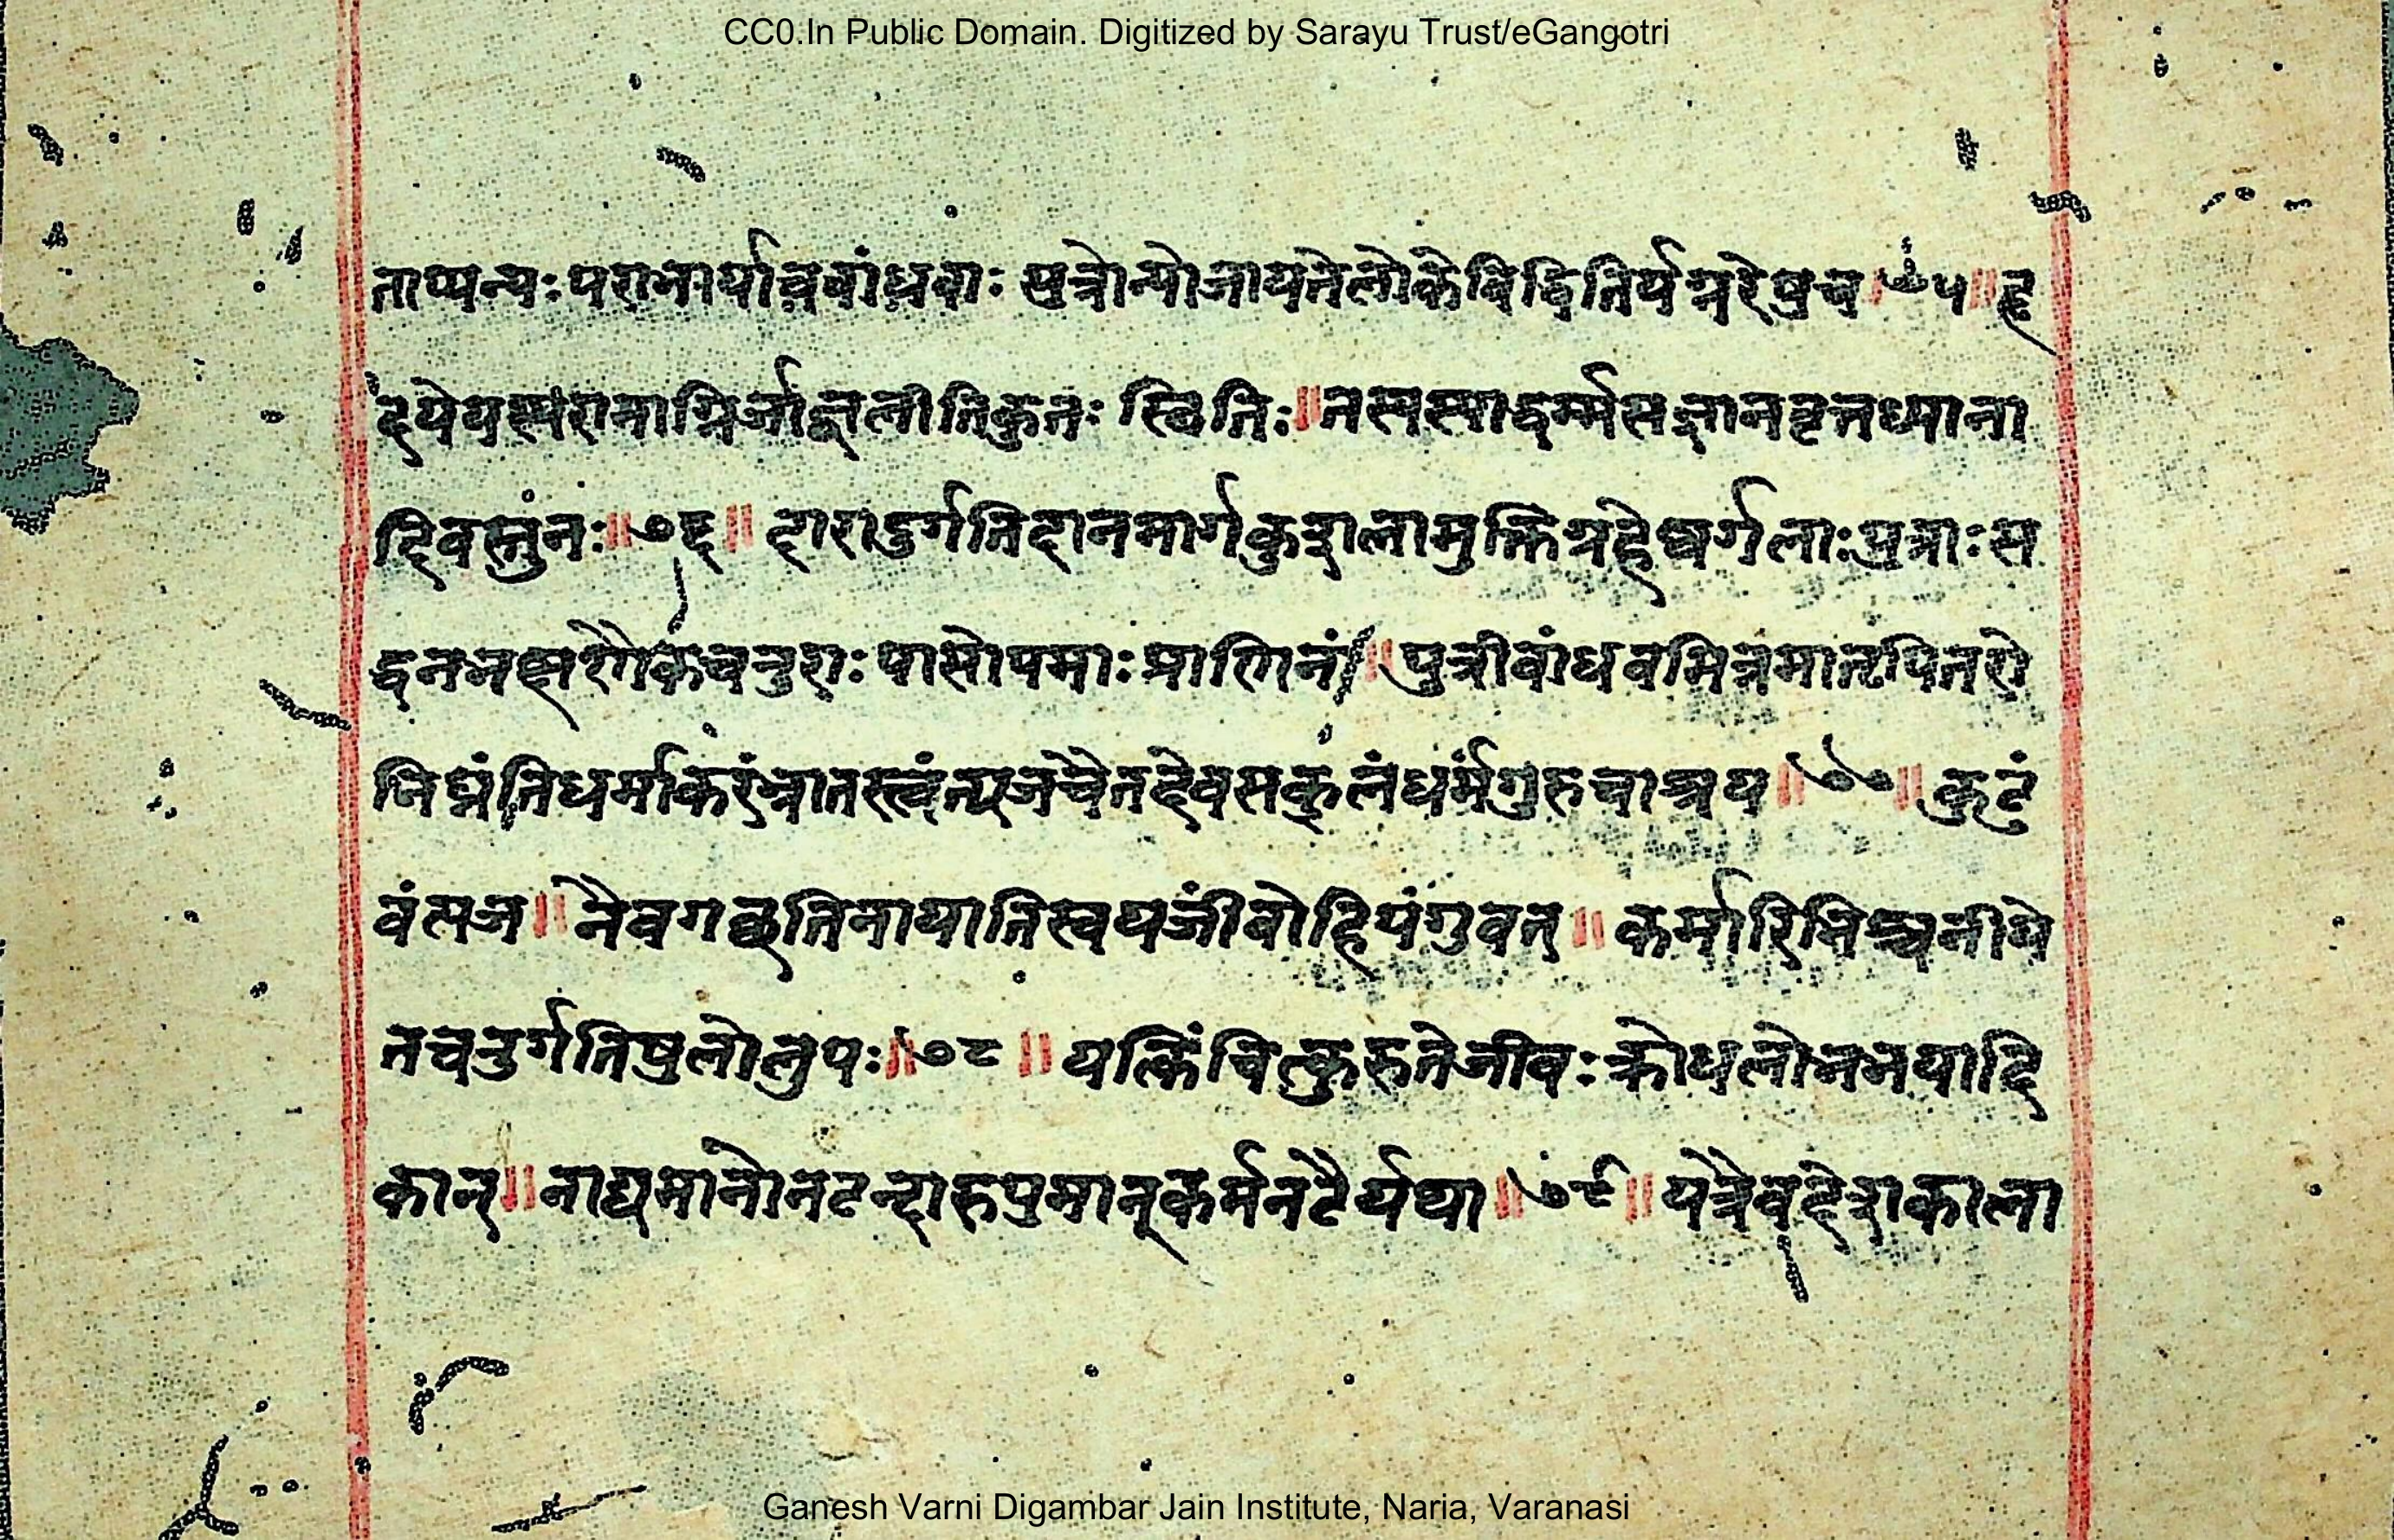 CC0.In Public Domain. Digitized by Sarayu Trust/eGangotri
ताप्यन्यः परा भार्या च बांधवाः पुत्रोन्योजायतेलोकेविद्धितिर्यग्नरेषुच ७५॥ हृ
दये यस्य रामाग्निर्जाज्वलीतिकुतः स्थितिः॥तस्यस्याद्धर्म्मसज्ञानवृत्तध्याना
दिवस्तुनः॥७६॥ दारादुर्गतिदानमार्गकुशलामुक्तिगृहेष्वर्गलाःपुत्राःस
द्धनभक्षणैकचतुराः पासोपमाः प्राणिनां॥ पुत्रीबांधवमित्रमातृपितरो
निघ्नंतिधर्माकरंभ्रातस्त्वंत्यजचैतदेवसकलंधर्मंगुरुचाश्रय॥७७॥ कुटं
बंत्यज॥ नैवगच्छतिनायातिस्वयजीवोहिपंगुवत्॥ कर्मारिभिश्चनीये
तचतुर्गतिषुलोलुपः॥७८॥ यत्किंचित्कुरुतेजीवः क्रोधलोभभयादि
कान्॥ नाद्यमानोनटन्दारुपुमान्कर्मनटैर्यथा॥७९॥ यत्रैवदेशकाला
Ganesh Varni Digambar Jain Institute, Naria, Varanasi